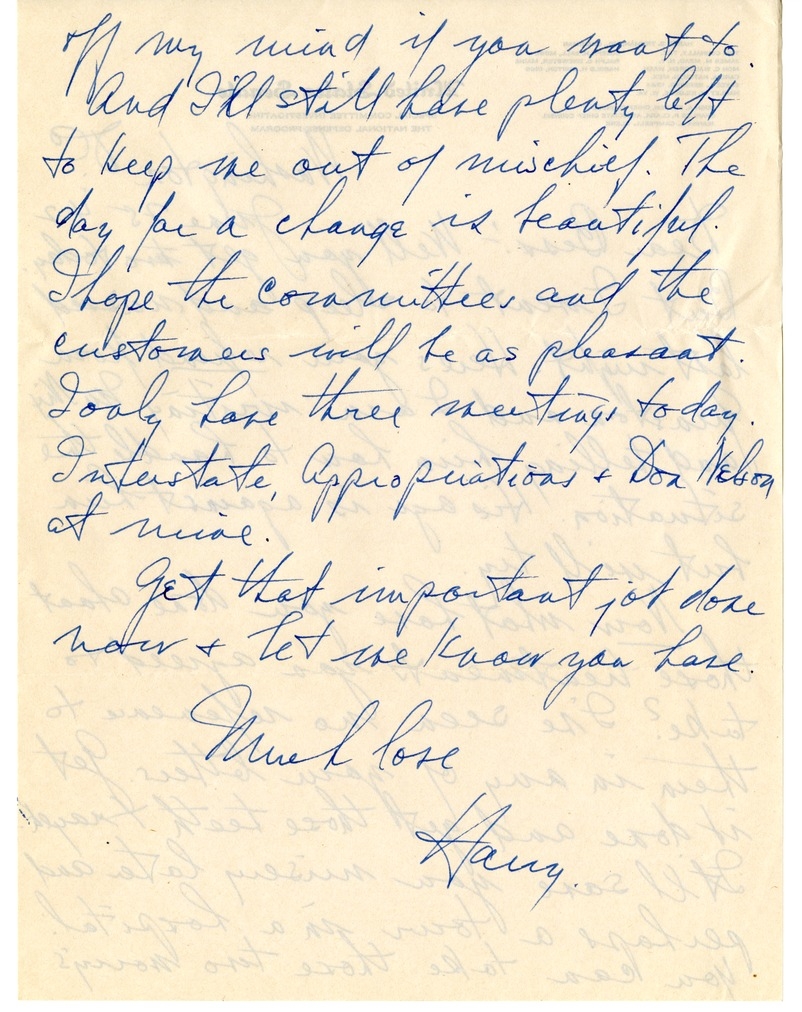 off my mind if you want to.
And I'll still have plenty left
to keep me out of mischief. The
day for a change is beautiful.
I hope the committees and the
customers will be as pleasant.
I only have three meetings today.
Interstate, Appropriations & Don Nelson
at nine.
Get that important job done
now & let me know you have.
Much love
Harry.